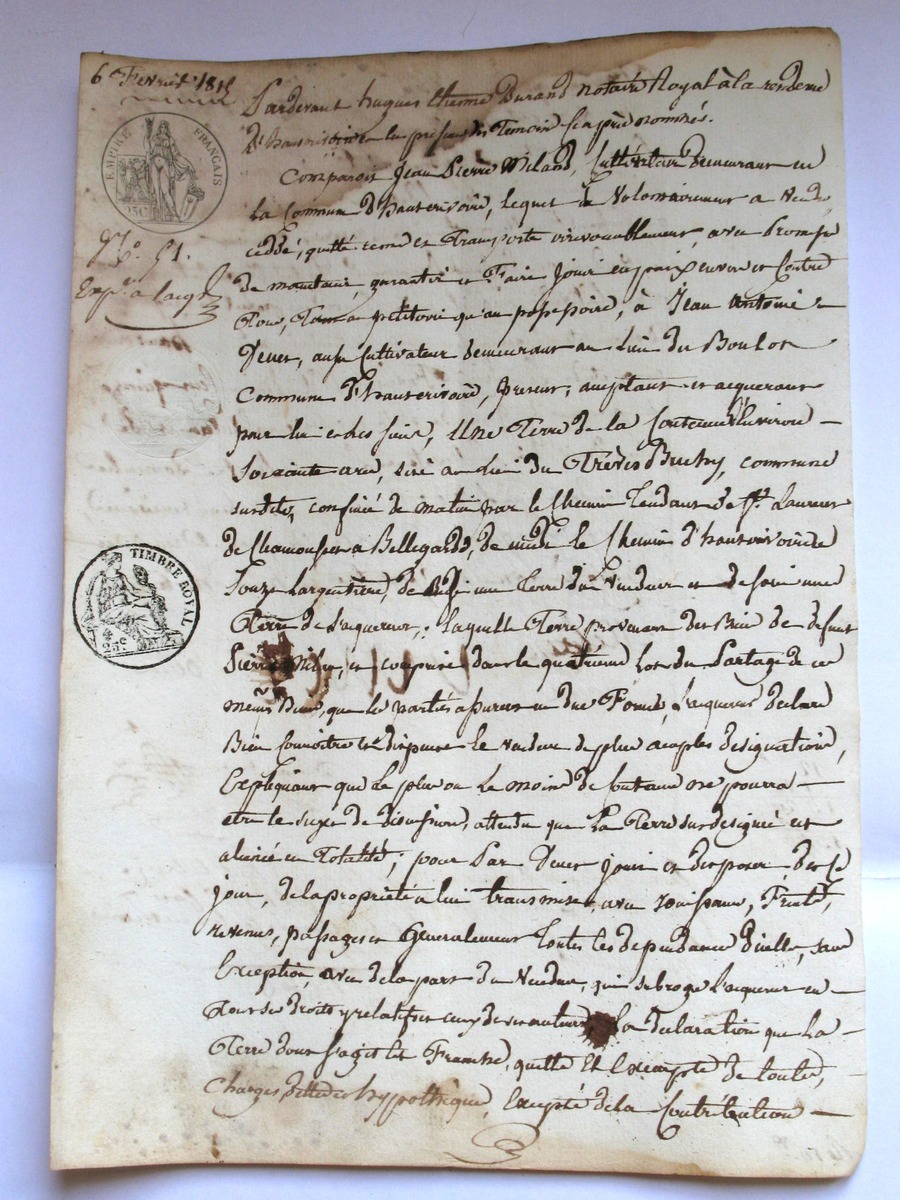 6 Fevrier 1815
Pardevant hugues Etienne Durand notaire Royal à la residence
d'hauterivoire en la presence des Temoins ci après nommés.
Comparoit Jean Pierre Miland, Cultivateur demeurant en
EMPIRE FRANÇAIS
25C
La Commune d'hauterivoire, lequel de Volontairement a vendu
ceddé, quitté remis et Transporté irrevocablement, avec Promesse
N.º 51.
de maintenir, garantir et Faire Jouir en paix envers et Contre
Exp.
Tous, Tant au petitoire qu'au possessoire, à Jean Antoine
aussi Cultivateur demeurant au Lieu du Boulor
Commune d'hauterivoire, present, acceptant et acquerant
pour lui et les siens, Une Terre de la Contenue d'environ
Soixante ares, sise au Lieu du commune
surdite, confinée de matin par le Chemin Tendant de St. Laurent
de Chamousset à Bellegarde, de midi le Chemin d'hauterivoire
TIMBRE ROYAL
25c
une terre du Vendeur et de soir une
Terre de L'aquereur; Laquelle Terre provenant des Biens de defunt
Pierre et comprise dans le quatrième Lot du Partage de ces
mêmes Biens, que les parties assurent en due Forme, L'aquereur declare
Bien Connoitre et dispense le vendeur de plus amples designations,
Expliquant que Le plus ou Le moins de contenue ne pourra
etre le sujet de discussions, attendu que La Terre sus designée est
alienée en Totalité; pour Par jouir et disposer dès ce
jour, de la propriété a lui transmise, avec Jouissance, Fruits,
revenus, passages et Generalement Toutes les dependances d'icelle, sans
Exception, avec de la part du Vendeur, qui subroge L'aquereur en
Tous ses droits y relatifs et ceux de ses auteurs La declaration que La
Terre dont s'agit est Franche, quitte Et Exempte de toutes
Charges, dettes et hypothèques, Excepté de la Contribution